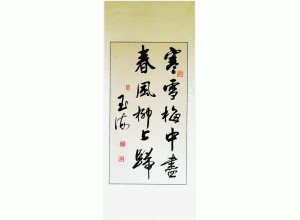 寒雪梅中盡
春風柳上歸
玉海